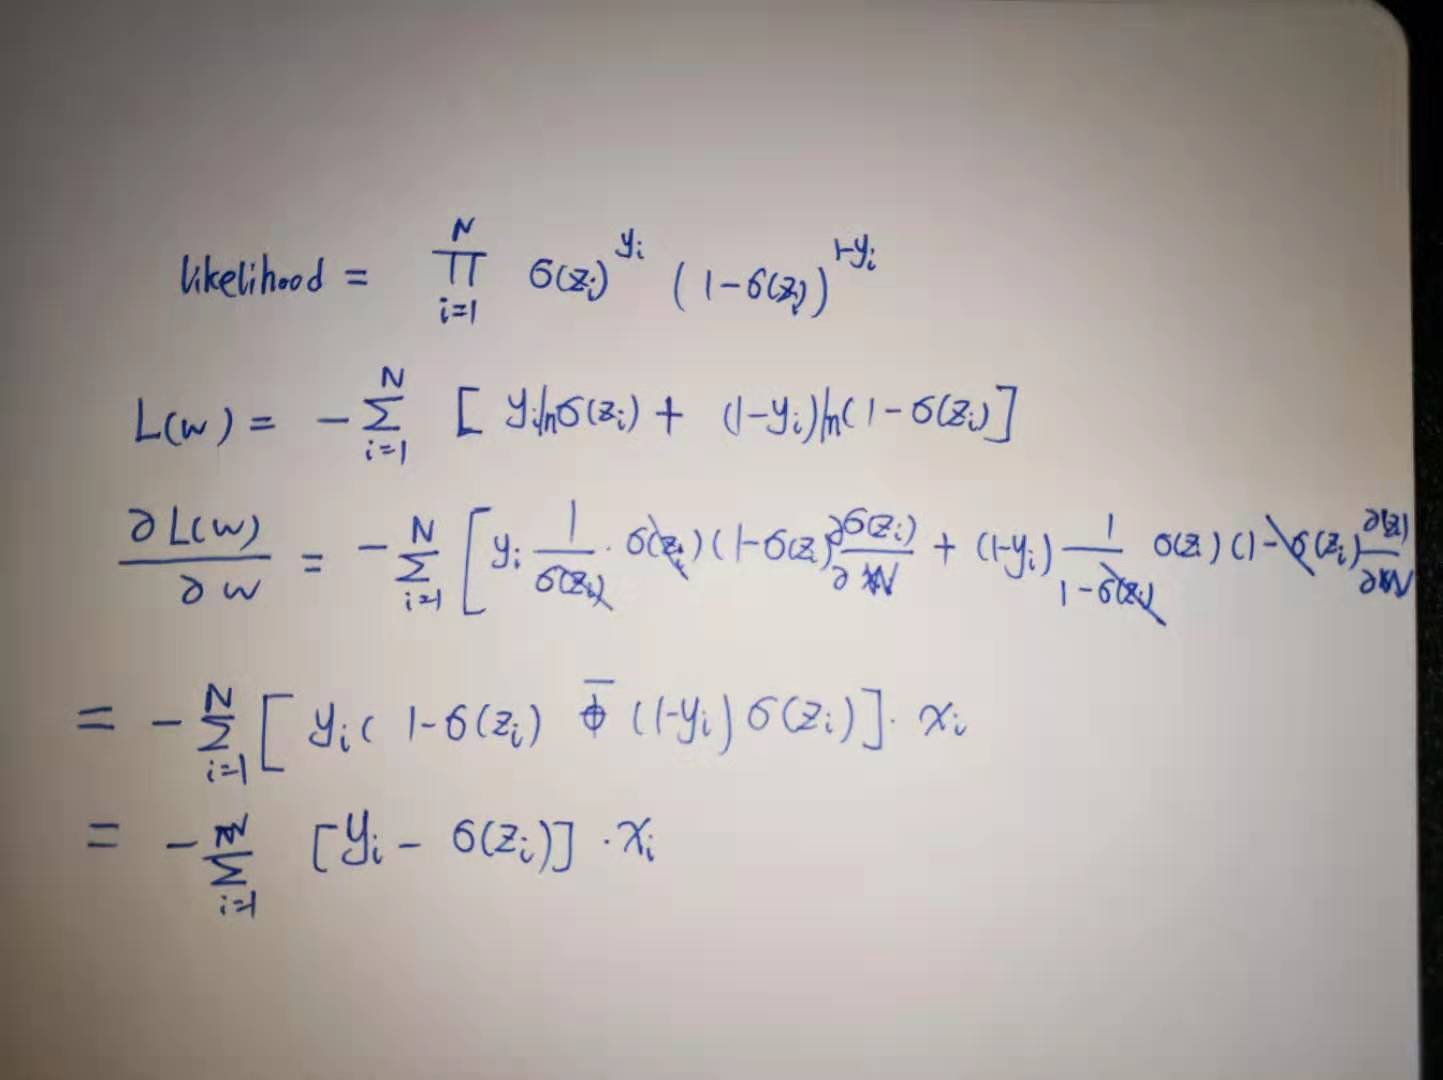 likelihood = ∏_{i=1}^{N} σ(z_i)^{y_i} (1-σ(z_i))^{1-y_i}
L(w) = -∑_{i=1}^{N} [ y_i ln σ(z_i) + (1-y_i) ln(1-σ(z_i) ]
∂L(w)/∂w = -∑_{i=1}^{N} [ y_i 1/σ(z_i) · σ(z_i)(1-σ(z_i) ∂σ(z_i)/∂w + (1-y_i) 1/(1-σ(z_i)) σ(z)(1-σ(z_i) ∂(z)/∂w
= -∑_{i=1}^{N} [ y_i( 1-σ(z_i) - (1-y_i) σ(z_i) ] · x_i
= -∑_{i=1}^{N} [ y_i - σ(z_i) ] · x_i